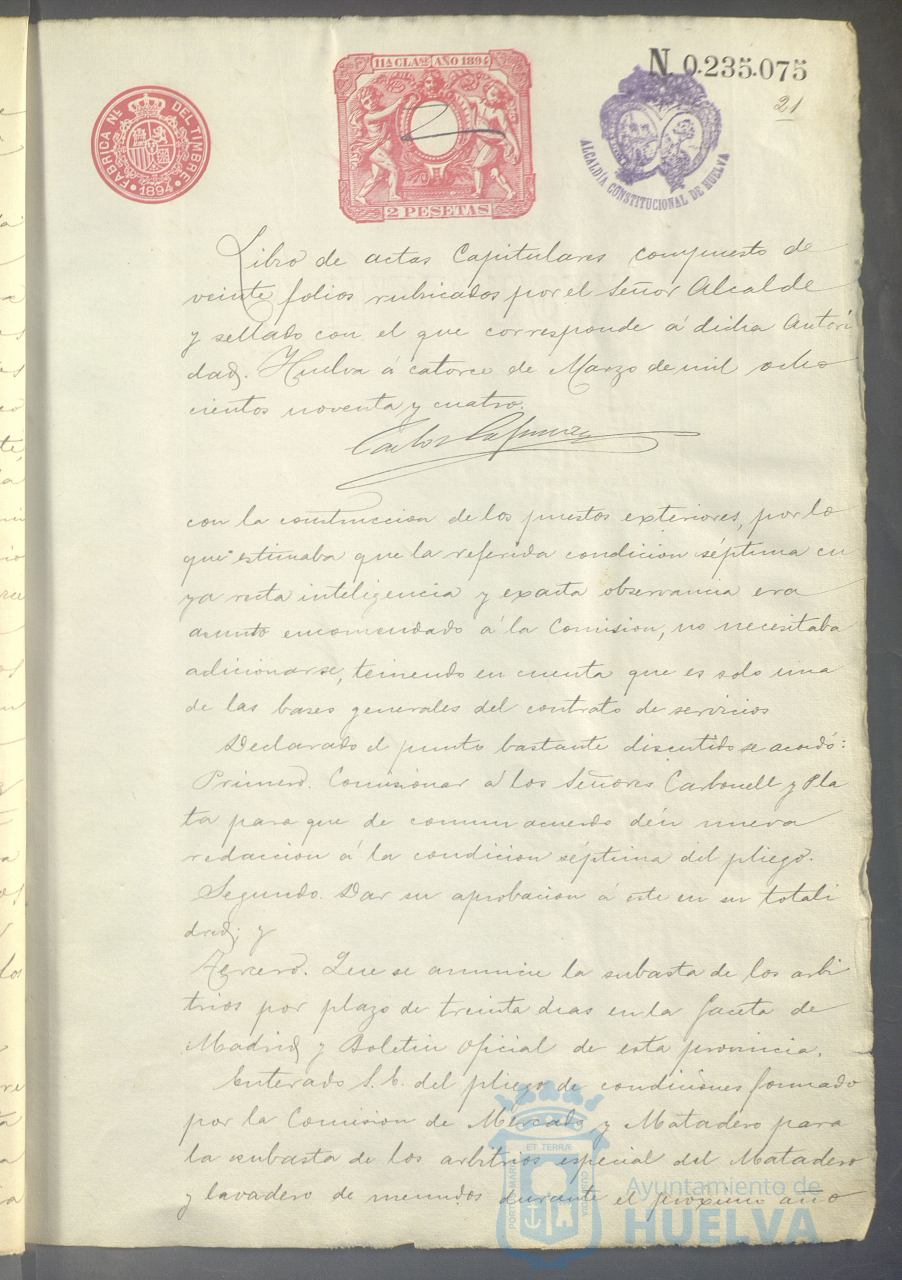 FABRICA NL. DEL TIMBRE
1894
11A CLASE AÑO 1894
2 PESETAS
N. 0.235.075
21
ALCALDIA CONSTITUCIONAL DE HUELVA
Libro de actas Capitulares compuesto de
veinte folios rubricados por el Señor Alcalde
y sellado con el que corresponde á dicha Autori
dad. Huelva á catorce de Marzo de mil ocho
cientos noventa y cuatro.
Carlos
con la construccion de los puestos exteriores, por lo
que estimaba que la referida condicion séptima cu
ya recta inteligencia y exacta observancia era
asunto encomendado á la Comision, no necesitaba
adicionarse, teniendo en cuenta que es solo una
de las bases generales del contrato de servicios
Declarado el punto bastante discutido se acordó:
Primero. Comisionar á los Señores Carbonell y Pla
ta para que de comun acuerdo dén nueva
redaccion á la condicion séptima del pliego.
Segundo. Dar su aprobacion á este en su totali
dad; y
Tercero. Que se anuncie la subasta de los arbi
trios por plazo de treinta dias en la Gaceta de
Madrid y Boletin Oficial de esta provincia.
Enterado S. E. del pliego de condiciones formado
por la Comision de Mercado y Matadero para
la subasta de los arbitrios especial del Matadero
y lavadero de menudos durante el proximo año
PORTUS MARIS ET TERRÆ CUSTODIA
Ayuntamiento de
HUELVA